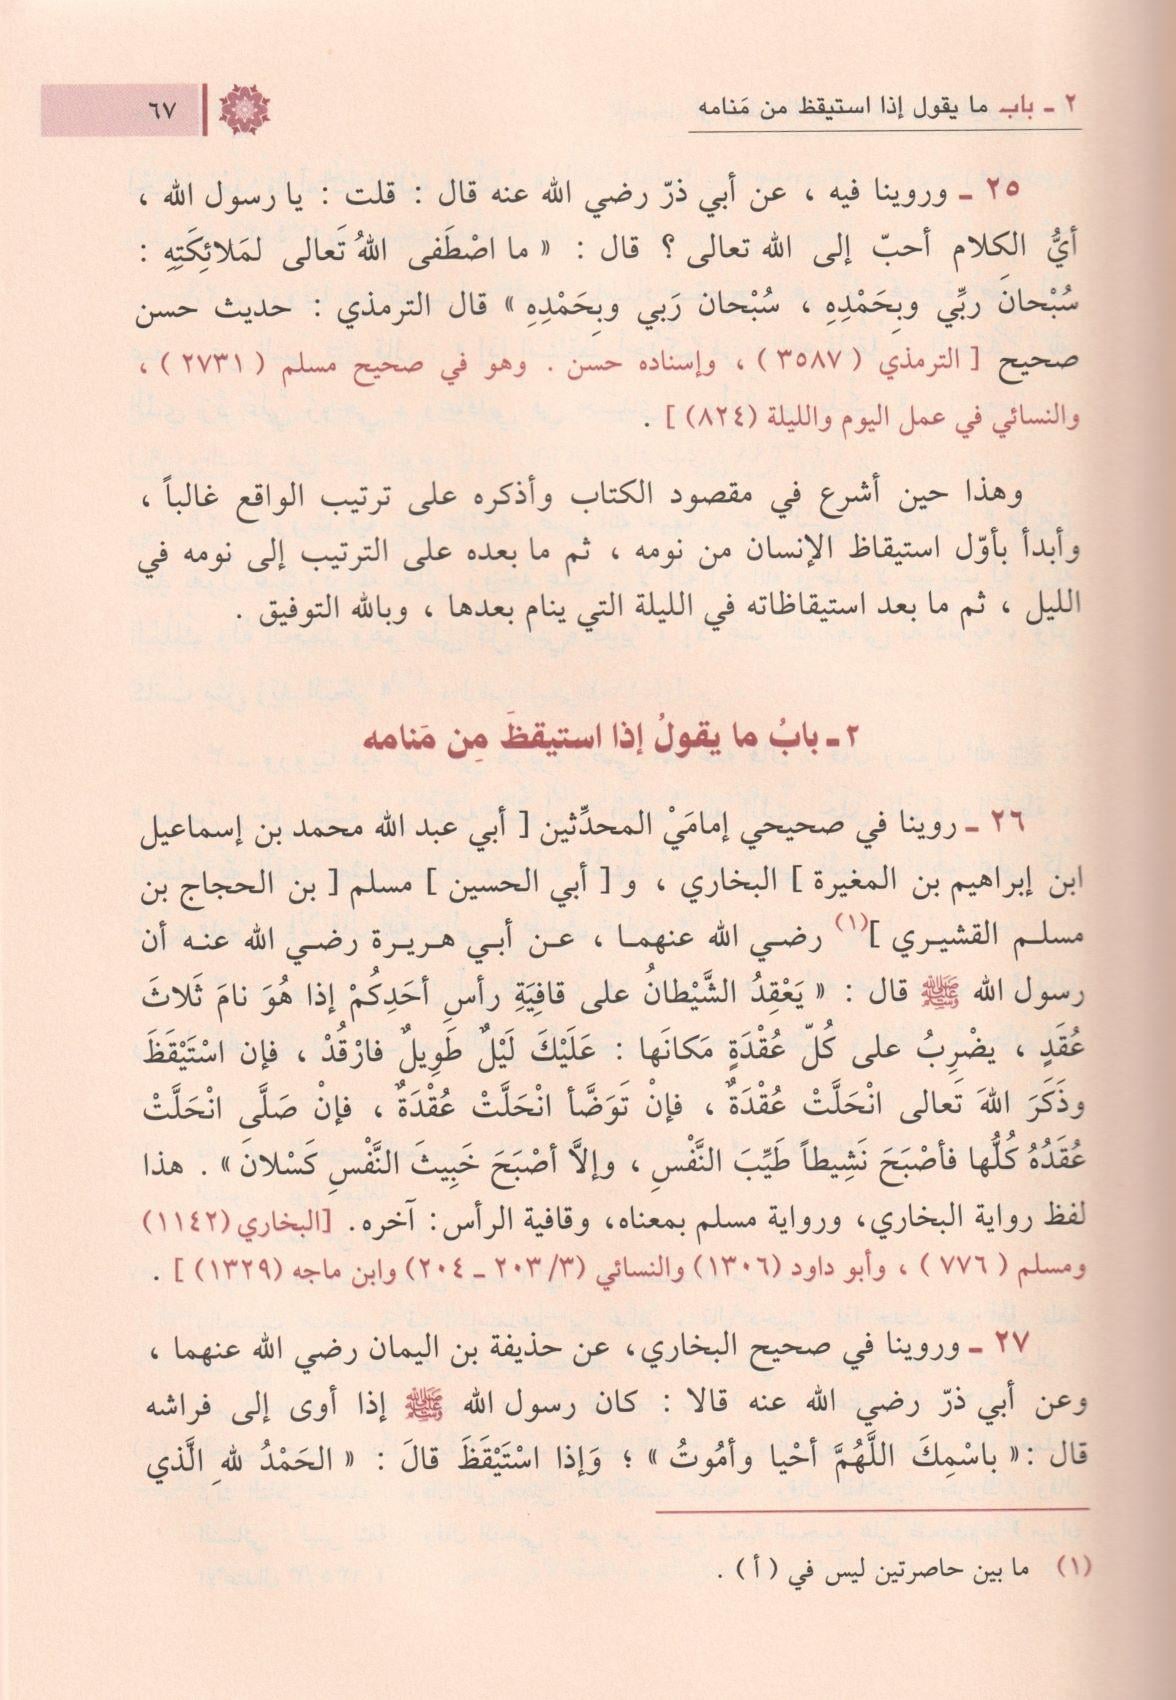 ٢ ـ باب ما يقول إذا استيقظ من مَنامه
٦٧
٢٥ ـ وروينا فيه ، عن أبي ذرّ رضي الله عنه قال : قلت : يا رسول الله ،
أيُّ الكلام أحبّ إلى الله تعالى ؟ قال : « ما اصْطَفى اللهُ تَعالى لمَلائِكَتِهِ :
سُبْحانَ ربِّي وبِحَمْدِهِ ، سُبْحان رَبي وبِحَمْدِهِ » قال الترمذي : حديث حسن
صحيح [ الترمذي ( ٣٥٨٧ ) ، وإسناده حسن . وهو في صحيح مسلم ( ٢٧٣١ ) ،
والنسائي في عمل اليوم والليلة (٨٢٤) ] .
وهذا حين أشرع في مقصود الكتاب وأذكره على ترتيب الواقع غالباً ،
وأبدأ بأوّل استيقاظ الإنسان من نومه ، ثم ما بعده على الترتيب إلى نومه في
الليل ، ثم ما بعد استيقاظاته في الليلة التي ينام بعدها ، وبالله التوفيق .
٢ ـ بابُ ما يقولُ إذا استيقظَ مِن مَنامه
٢٦ ـ روينا في صحيحي إمامَيْ المحدِّثين [ أبي عبد الله محمد بن إسماعيل
ابن إبراهيم بن المغيرة ] البخاري ، و [ أبي الحسين ] مسلم [ بن الحجاج بن
مسلم القشيري ](١) رضي الله عنهما ، عن أبي هريرة رضي الله عنه أن
رسول الله ﷺ قال : « يَعْقِدُ الشَّيْطانُ على قافِيَةِ رأسِ أحَدِكُمْ إذا هُوَ نامَ ثَلاثَ
عُقَدٍ ، يضْرِبُ على كُلّ عُقْدَةٍ مَكانَها : عَلَيْكَ لَيْلٌ طَوِيلٌ فارْقُدْ ، فإن اسْتَيْقَظَ
وذَكَرَ اللهَ تَعالى انْحَلَّتْ عُقْدَةٌ ، فإنْ تَوَضَّأ انْحَلَّتْ عُقْدَةٌ ، فإنْ صَلَّى انْحَلَّتْ
عُقَدُهُ كُلُّها فأصْبَحَ نَشِيطاً طَيِّبَ النَّفْسِ ، وإلاَّ أصْبَحَ خَبِيثَ النَّفْسِ كَسْلانَ » . هذا
لفظ رواية البخاري، ورواية مسلم بمعناه، وقافية الرأس: آخره. [البخاري (١١٤٢)
ومسلم ( ٧٧٦ ) ، وأبو داود (١٣٠٦) والنسائي (٢٠٣/٣ ـ ٢٠٤) وابن ماجه (١٣٢٩) ] .
٢٧ ـ وروينا في صحيح البخاري، عن حذيفة بن اليمان رضي الله عنهما ،
وعن أبي ذرّ رضي الله عنه قالا : كان رسول الله ﷺ إذا أوى إلى فراشه
قال : « باسْمِكَ اللَّهُمَّ أحْيا وأمُوتُ » ؛ وَإذا اسْتَيْقَظَ قالَ : « الحَمْدُ للهِ الَّذي
(١) ما بين حاصرتين ليس في ( أ ) .